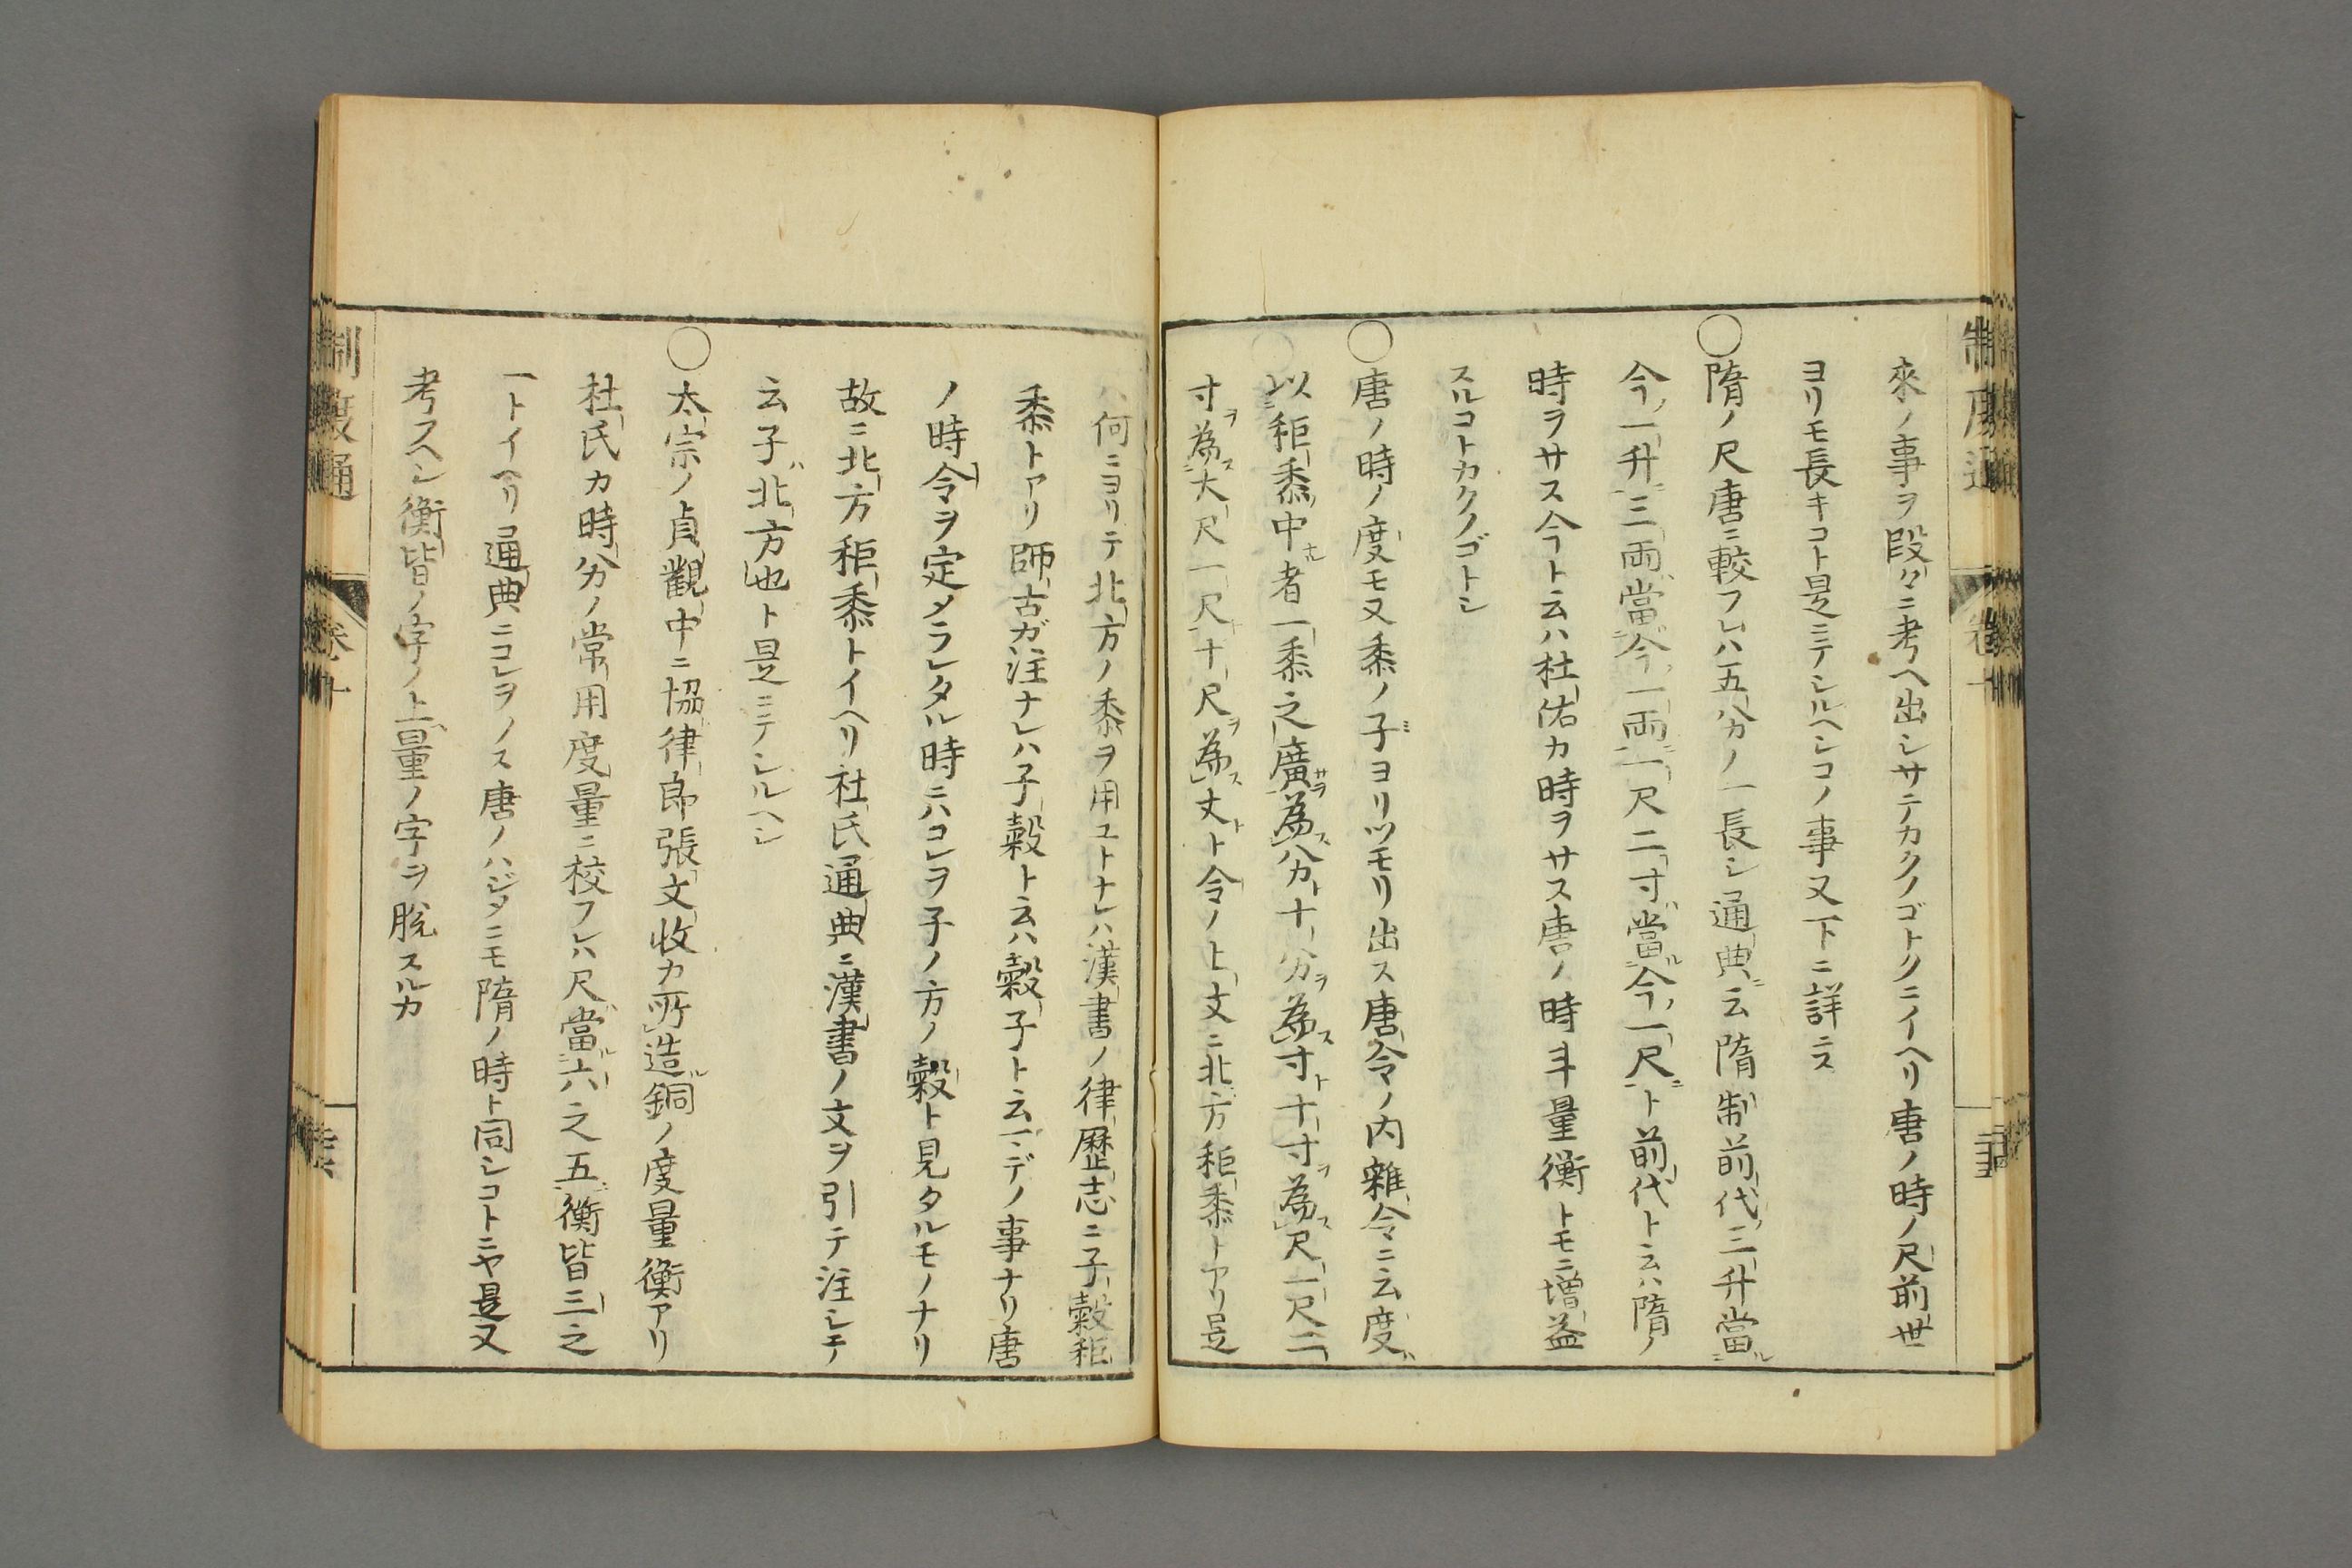 來ノ事ヲ段々ニ考ヘ出シサテカクノゴトクニイヘリ唐ノ時ノ尺前世
ヨリモ長キコト是ニテシルヘシコノ事又下ニ詳ニス
○隋ノ尺唐ニ較フレハ五分カノ一長シ通典ニ云隋制前代三升當ル
今ノ一升ニ三兩ハ當ル今ノ一兩ニ一尺二寸ハ當ル今ノ一尺ニト前代ト云ハ隋ノ
時ヲサス今ト云ハ杜佑カ時ヲサス唐ノ時斗量衡トモニ增益
スルコトカクノゴトシ
○唐ノ時ノ度モ又黍ノ子ヨリツモリ出ス唐令ノ内雜令ニ云度ハ
以秬黍中ナル者一黍之廣サヲ為ス分ト十分ヲ為ス寸ト十寸ヲ為ス尺一尺二
寸ヲ為ス大尺一尺十尺ヲ為ス丈ト令ノ上文ニ北方秬黍トアリ是
ハ何ニヨリテ北方ノ黍ヲ用ユトナレハ漢書ノ律歷志ニ子穀秬
黍トアリ師古ガ注ナレハ子穀ト云ハ穀子ト云マデノ事ナリ唐
ノ時令ヲ定メラレタル時ニハコレヲ子ノ方ノ穀ト見タルモノナリ
故ニ北方秬黍トイヘリ杜氏通典ニ漢書ノ文ヲ引テ注シテ
云子ハ北方也ト是ニテシルヘシ
○太宗ノ貞觀中ニ協律郎張文收カ所造ル銅ノ度量衡アリ
杜氏カ時分ノ常用度量ニ校フレハ尺ハ當ル六之五ニ衡皆三之
一トイヘリ通典ニコレヲノス唐ノハジメニモ隋ノ時ト同シコトニヤ是又
考フヘシ衡皆ノ字ノ上量ノ字ヲ脫スルカ
制度通
卷十